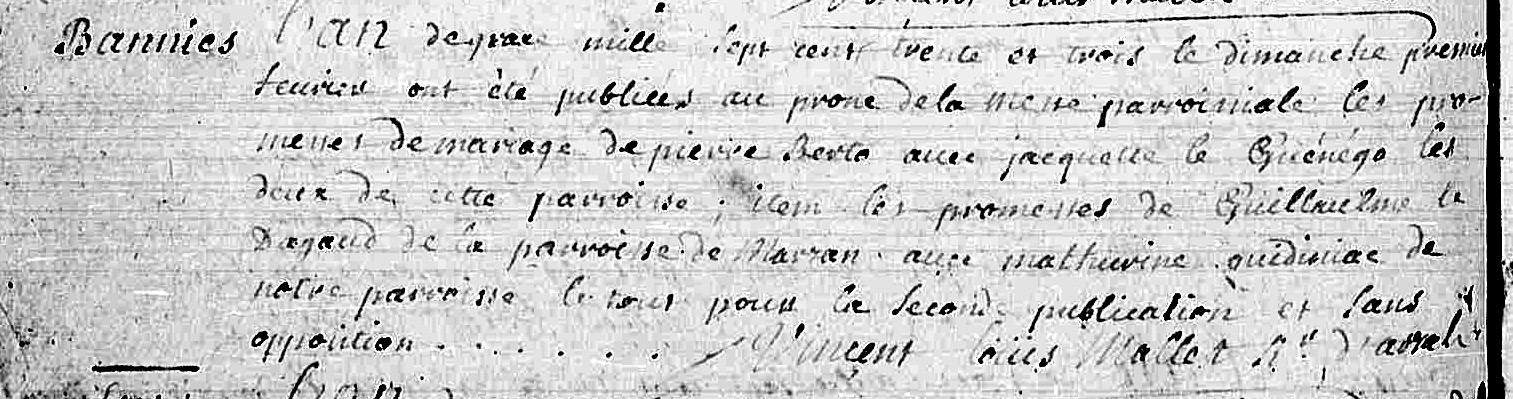 Bannies L'an de grace mille sept cent trente et trois le dimanche premier
feuvrier ont été publiées au prone de la messe parroissiale les pro-
messes de mariage de pierre Berto avec jacquette le Guénégo les
deux de cette parroisse ; item les promesses de Guillaulme le
Dagaud de la parroisse de Marzan avec mathurine guidiniac de
notre parroisse le tout pour la seconde publication et sans
opposition . . . . . . Vincent Loüis Mallet Rr
L'an